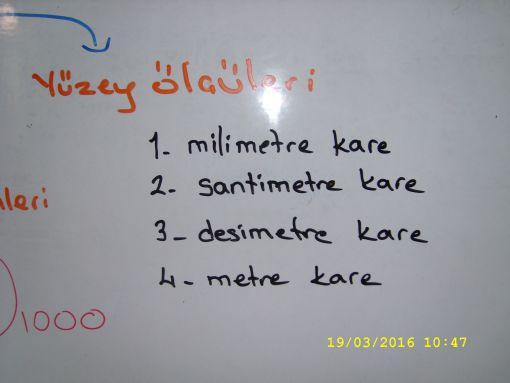 Yüzey ölçüleri
1- milimetre kare
2- santimetre kare
3- desimetre kare
4- metre kare
1000
19/03/2016 10:47